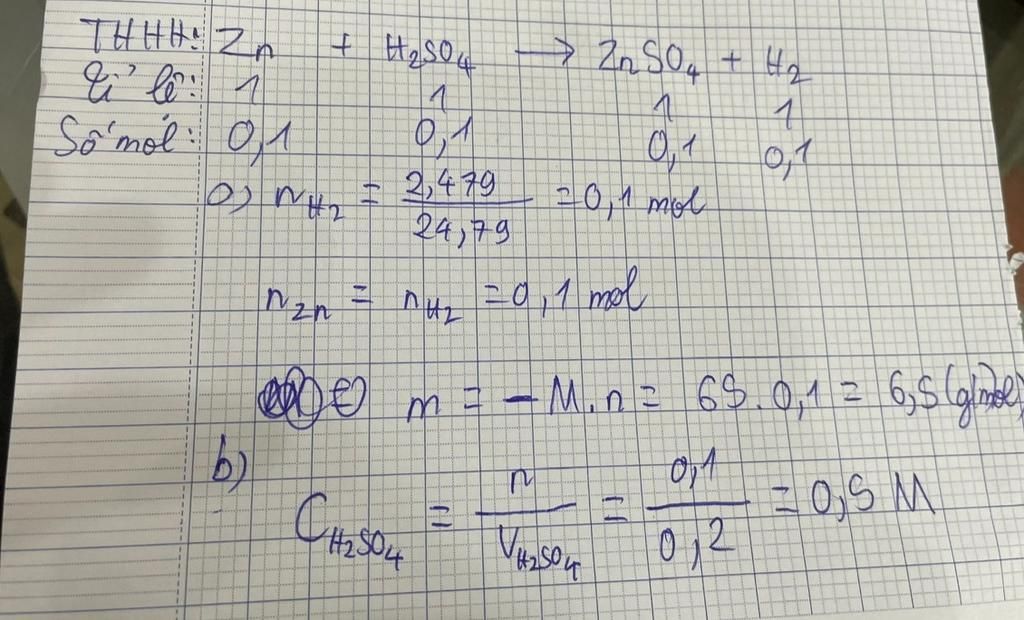 THHH: Zn + H₂SO₄ → ZnSO₄ + H₂
Tỉ lệ: 1 1 1 1
Số mol: 0,1 0,1 0,1 0,1
a) nH₂ = 2,479 / 24,79 = 0,1 mol
nZn = nH₂ = 0,1 mol
m = - M.n = 65.0,1 = 6,5 (g/mol)
b)
CH₂SO₄ = n / VH₂SO₄ = 0,1 / 0,2 = 0,5 M